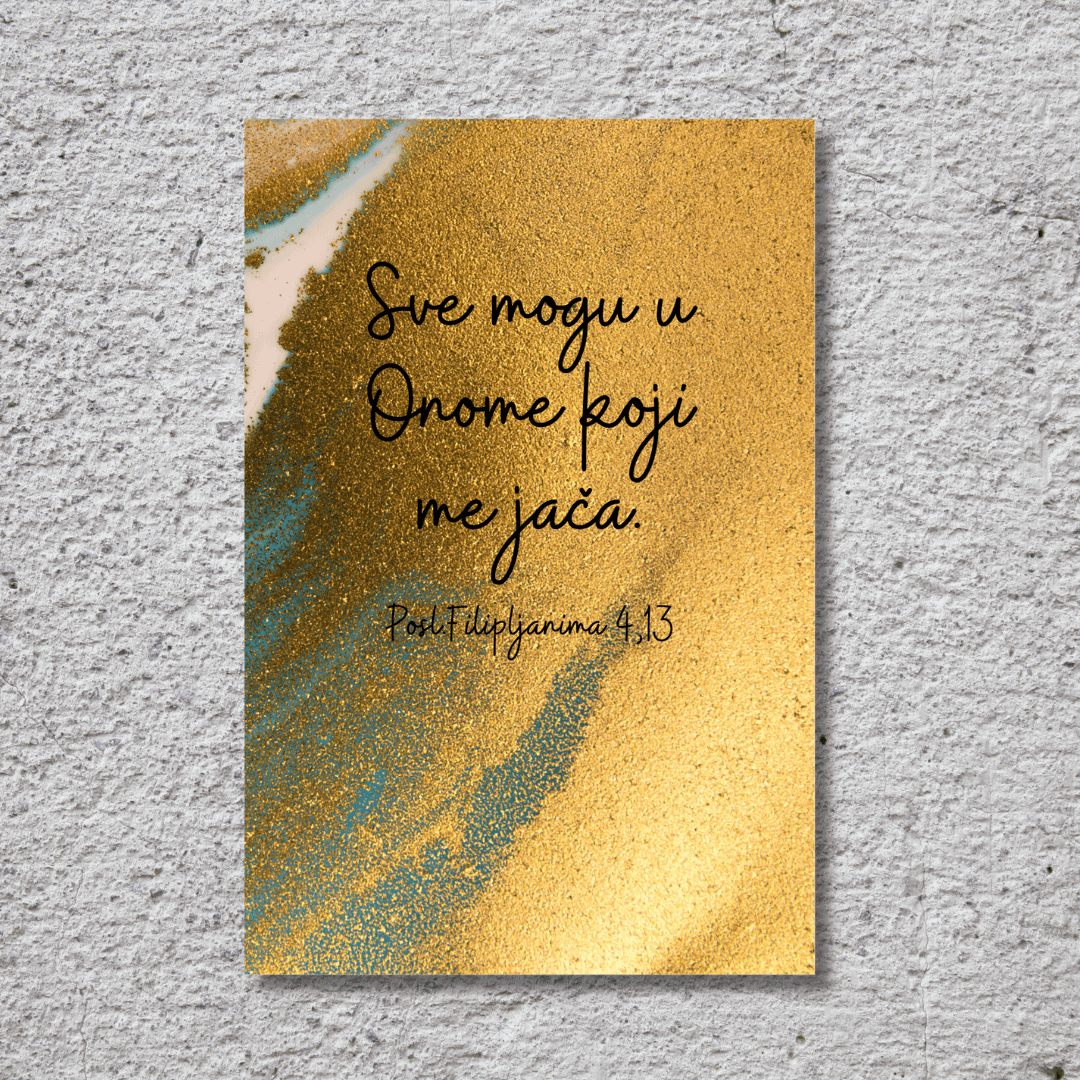 Sve mogu u
Onome koji
me jača.
Posl.Filipljanima 4,13